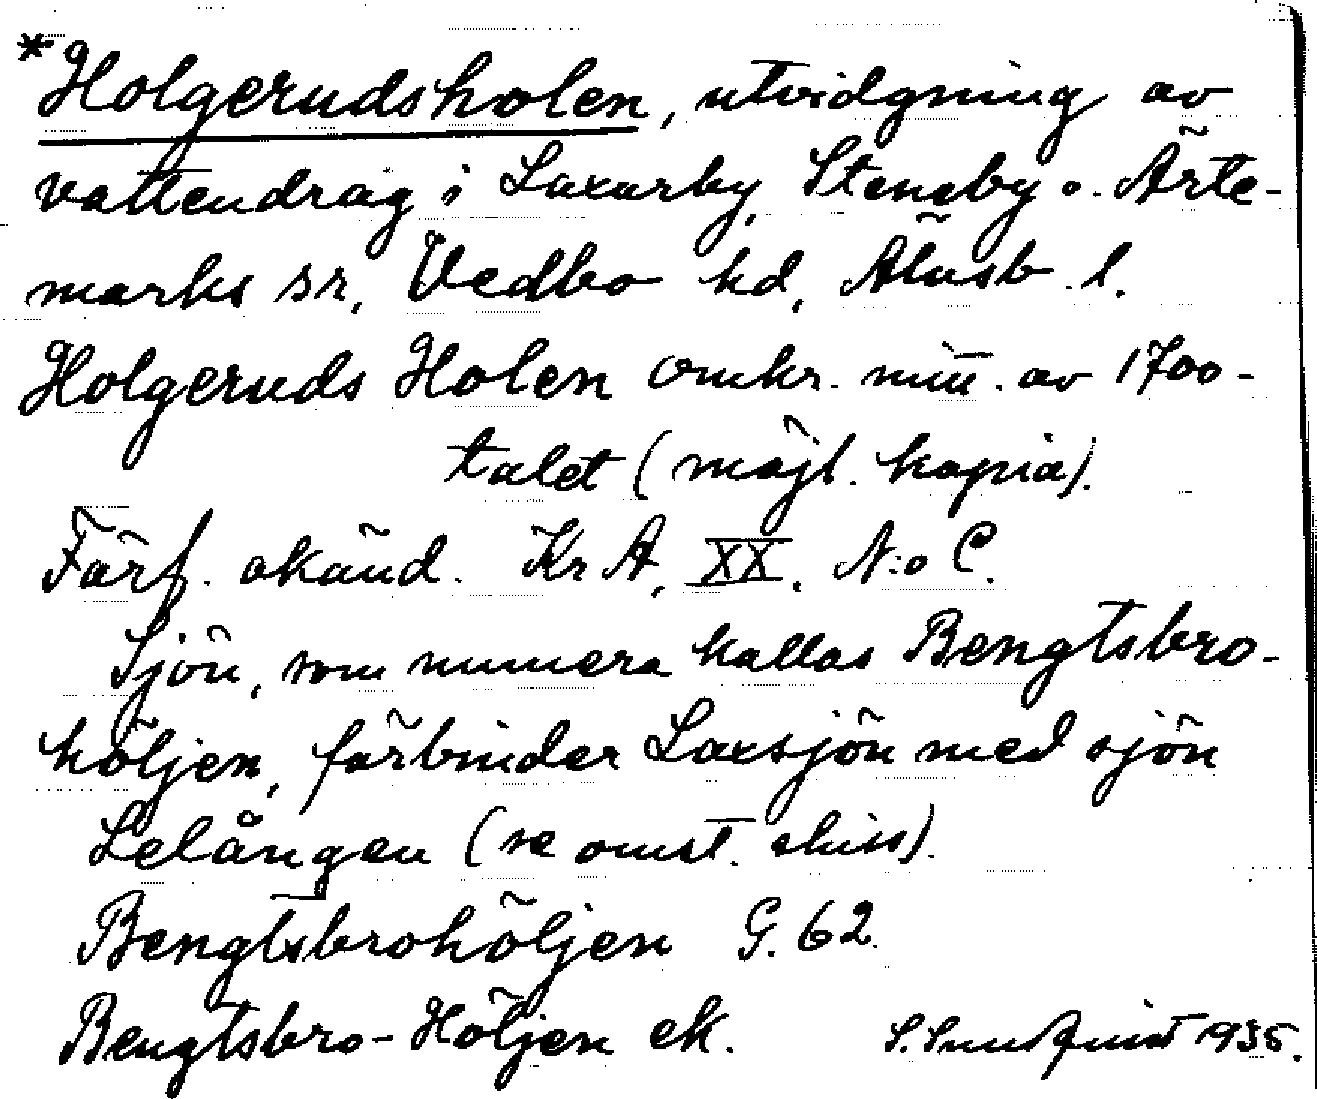 *Holgerudsholen, utvidgning av
vattendrag i Laxarby, Steneby o. Ärte-
marks sr, Vedbo hd, Älvsb. l.
Holgeruds Holen omkr. mitt. av 1700-
talet (möjl. kopia).
Förf. okänd. KrA, XX. N:o C.
Sjön, som numera kallas Bengtsbro-
höljen, förbinder Laxsjön med sjön
Lelången (se omst. skiss).
Bengtsbrohöljen G. 62.
Bengtsbro-Höljen ek. S. Sundquist 1935.